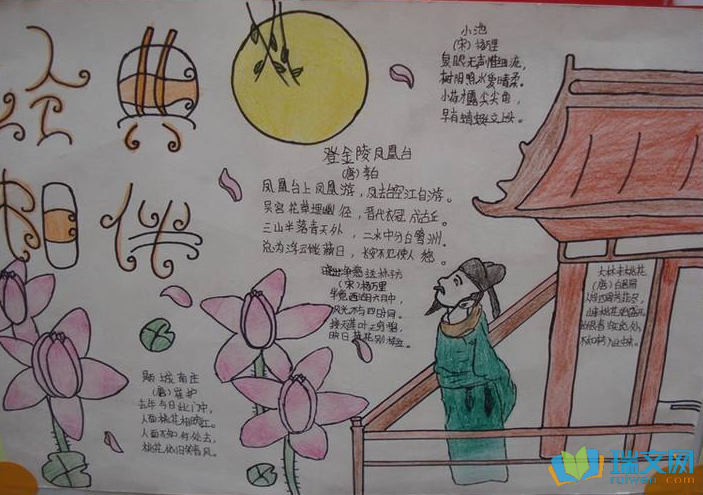 经典
相伴
小池
(宋)杨万里
泉眼无声惜细流,
树阴照水爱晴柔。
小荷才露尖尖角,
早有蜻蜓立上头。
登金陵凤凰台
(唐)李白
凤凰台上凤凰游,凤去台空江自流。
吴宫花草埋幽径,晋代衣冠成古丘。
三山半落青天外,二水中分白鹭洲。
总为浮云能蔽日,长安不见使人愁。
晓出净慈送林子方
(宋)杨万里
毕竟西湖六月中,
风光不与四时同。
接天莲叶无穷碧,
映日荷花别样红。
大林寺桃花
(唐)白居易
人间四月芳菲尽,
山寺桃花始盛开。
长恨春归无觅处,
不知转入此中来。
题城南庄
(唐)崔护
去年今日此门中,
人面桃花相映红。
人面不知何处去,
桃花依旧笑春风。
瑞文网
ruiwen.com